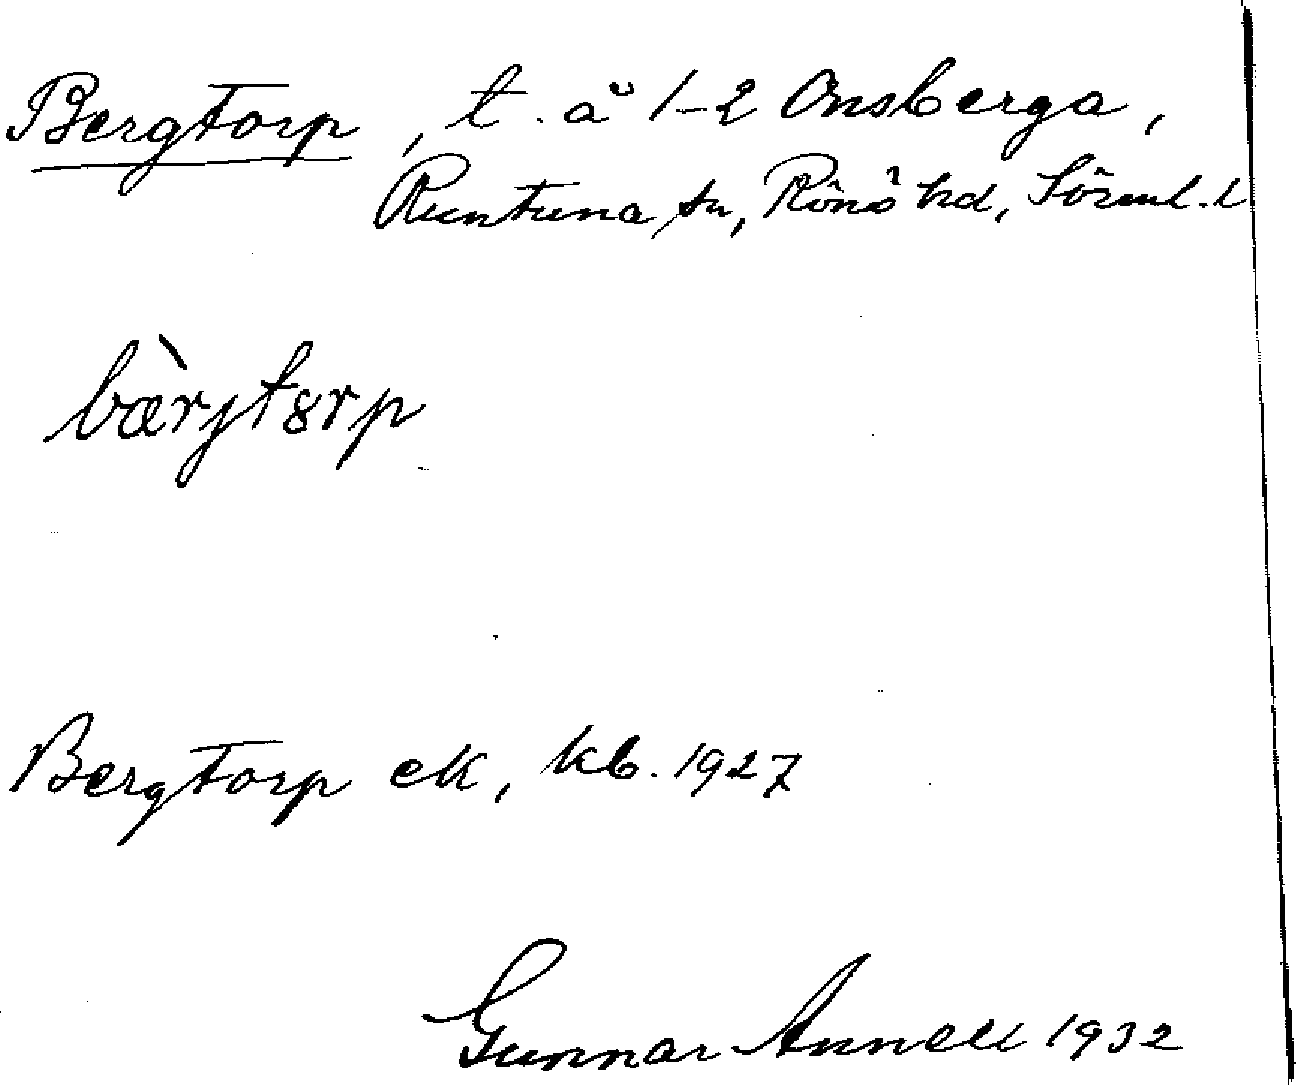 Bergtorp, t. å 1-2 Onsberga,
Runtuna sn, Rönö hd, Sörml. l
bæ̀rjtɞrp
Bergtorp ek, kb. 1927
Gunnar Annell 1932